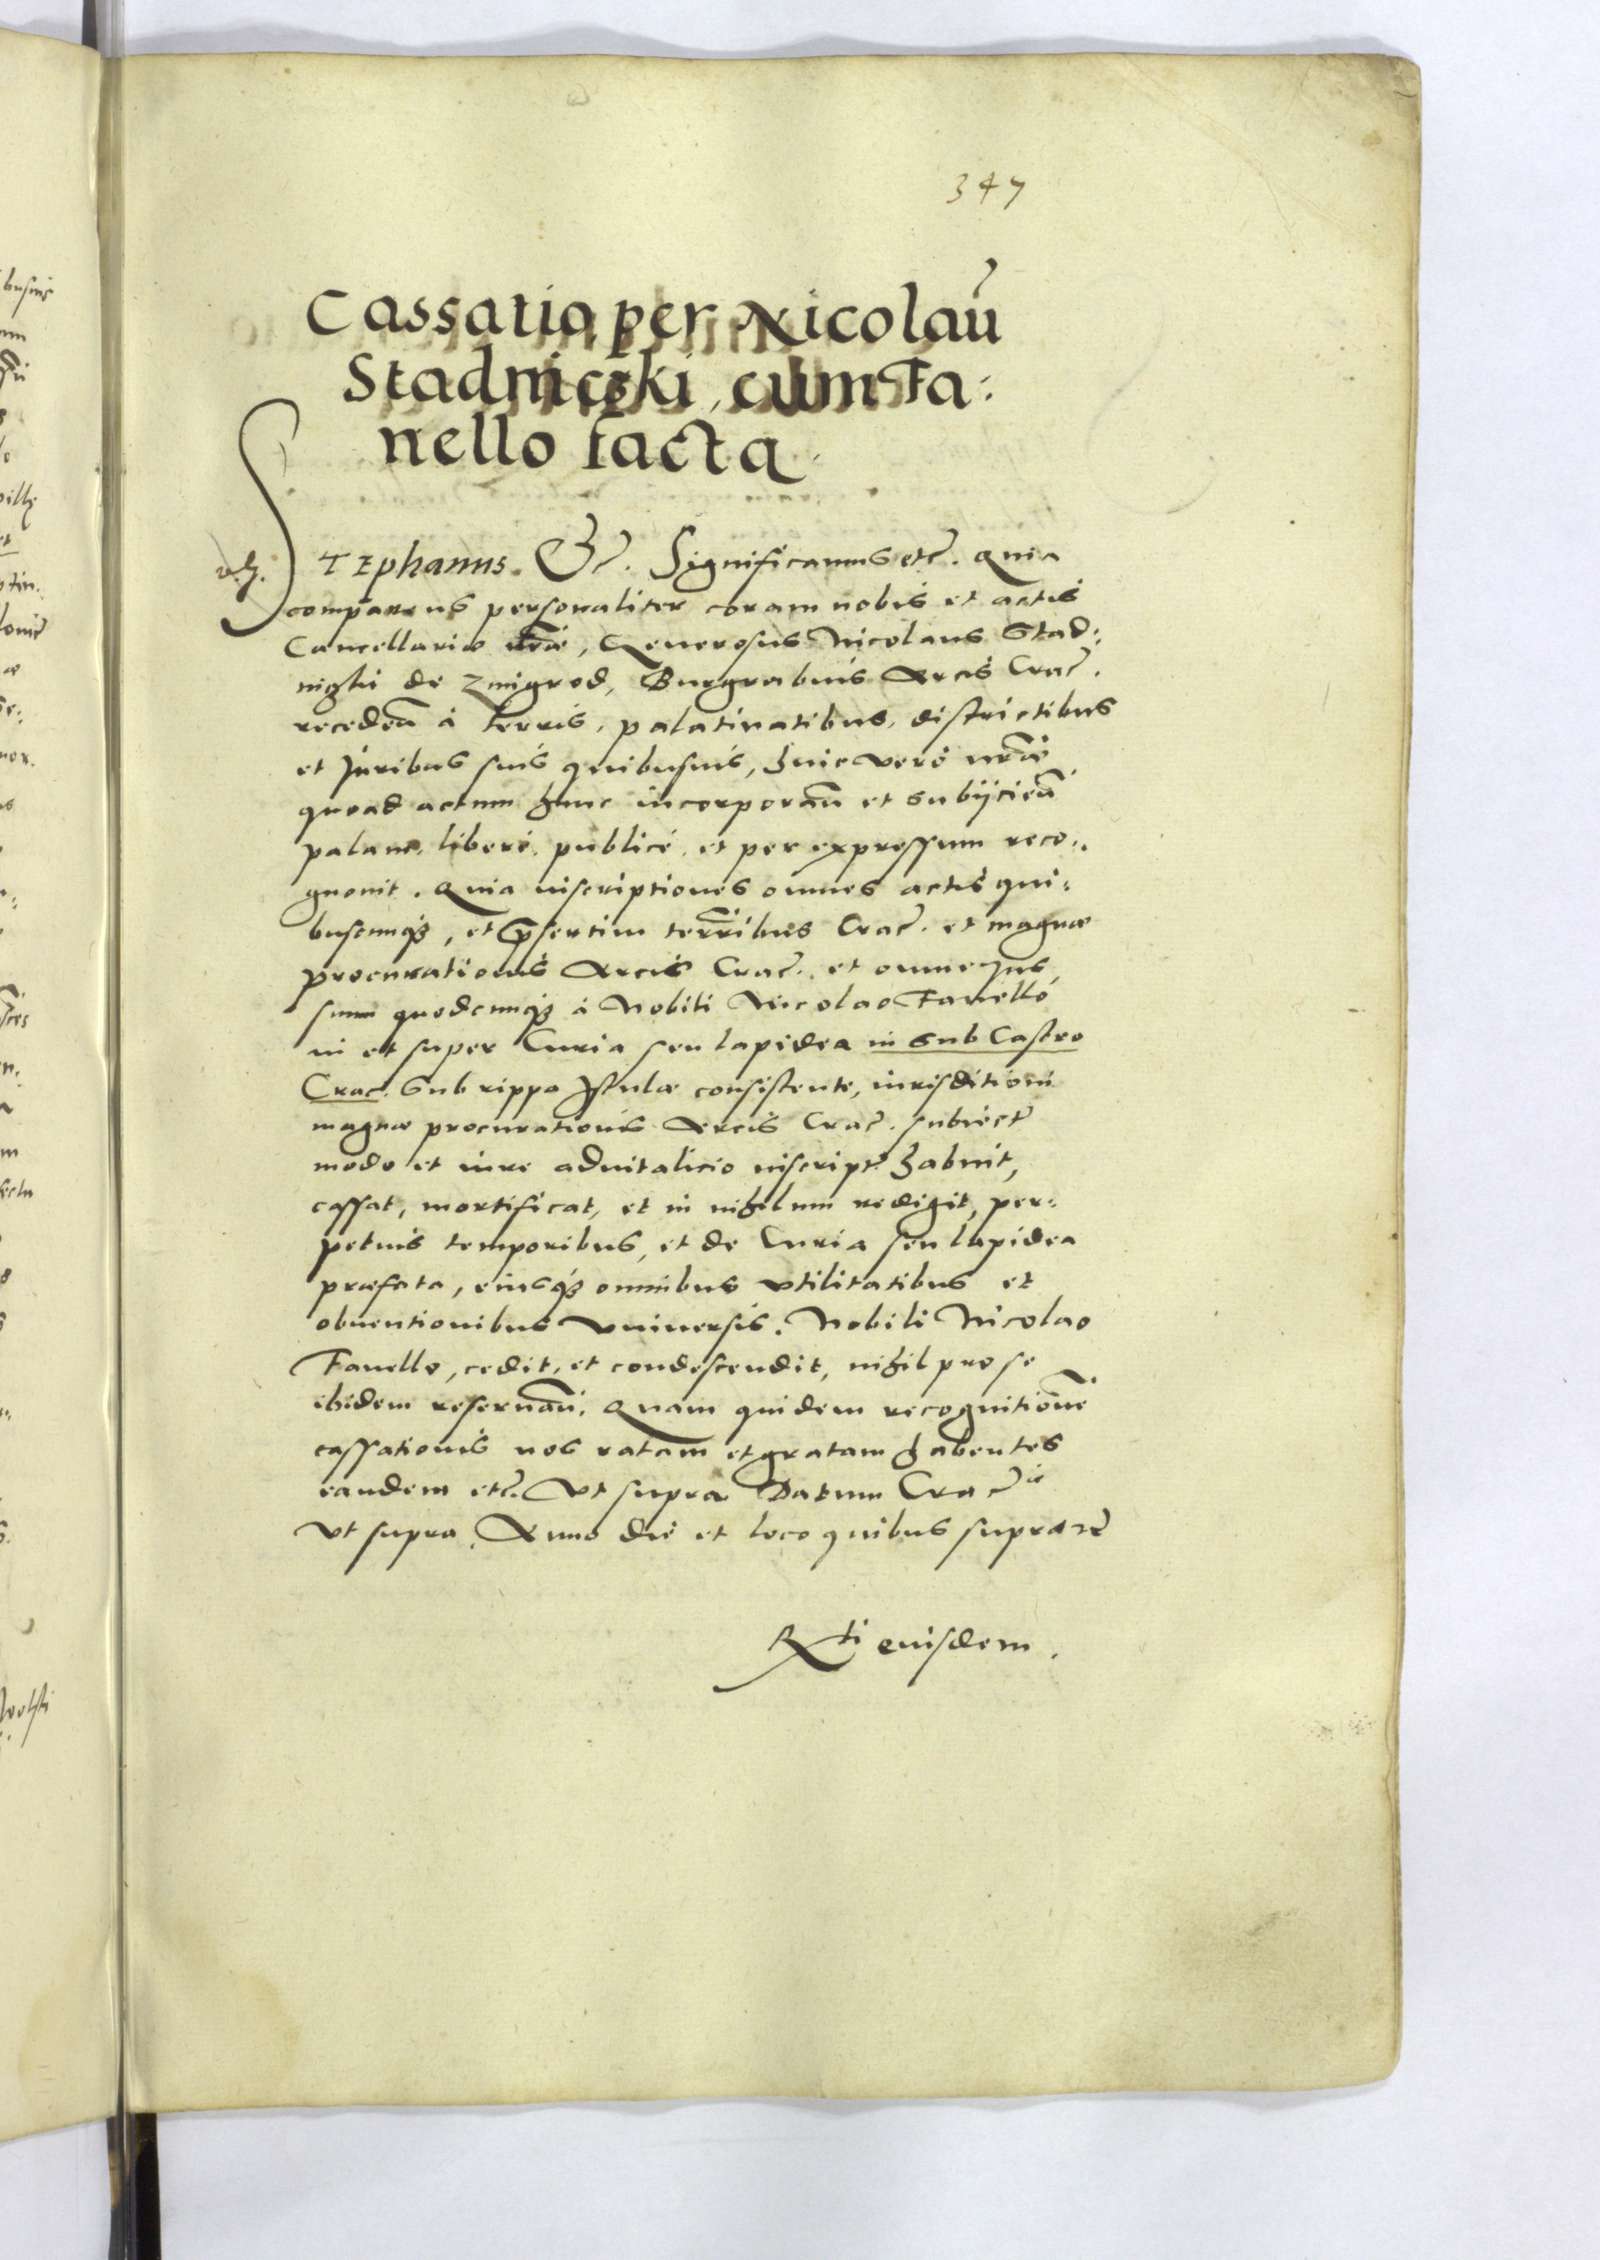 347
Cassatio per Nicolaū
Stadniczki, cum Fa:
nello facta.
Stephanus. &c. Significamus etc. Quia
comparens personaliter coram nobis et actis
Cancellariæ nr̄æ, Generosus Nicolaus Stad:
niczki de Zmigrod, Burgrabius Arcis Crac.
recedeñ à terris, palatinatibus, districtibus
et Juribus suis quibusuis, huic verò nr̄æ
quoad actum hunc incorporañ et subijcieñ
palam, liberè, publicè, et per expressum reco:
gnouit. Quia inscriptiones omnes actis qui:
buscunq3, et p̄sertim terr̄ibus Crac. et magnæ
procurationis Arcis Crac. et omne Jus
suum quodcunq3 à Nobili Nicolao Fanello
in et super Curia seu lapidea in sub Castro
Crac. sub rippa Istulæ consistente, iurisditioni
magnæ procurationis Arcis Crac. subiect
modo et iure aduitalicio inscript habuit,
cassat, mortificat, et in nihilum redigit, per:
petuis temporibus, et de Curia seu lapidea
præfata, eiusq3 omnibus vtilitatibus et
obuentionibus vniuersis. Nobili Nicolao
Fanello, cedit, et condescendit, nihil pro se
ibidem reseruañ. Quam quidem recognitionē
cassationis nos ratam et gratam habentes
eandem etc. Vt supra Datum Crac
Vt supra. Anno die et loco quibus supra
Rti eiusdem.